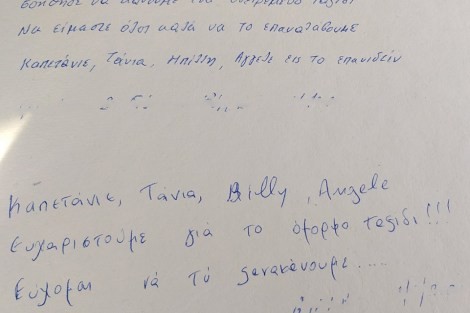 να κάνουμε
Να είμαστε όλοι καλά να το επαναλάβουμε
Καπετάνιε, Τάνια, Μπίλλη, Άγγελε εις το επανιδείν
Καπετάνιε, Τάνια, Billy, Angele
Ευχαριστούμε γιά το όμορφο ταξίδι!!!
Εύχομαι νά τό ξανακάνουμε....